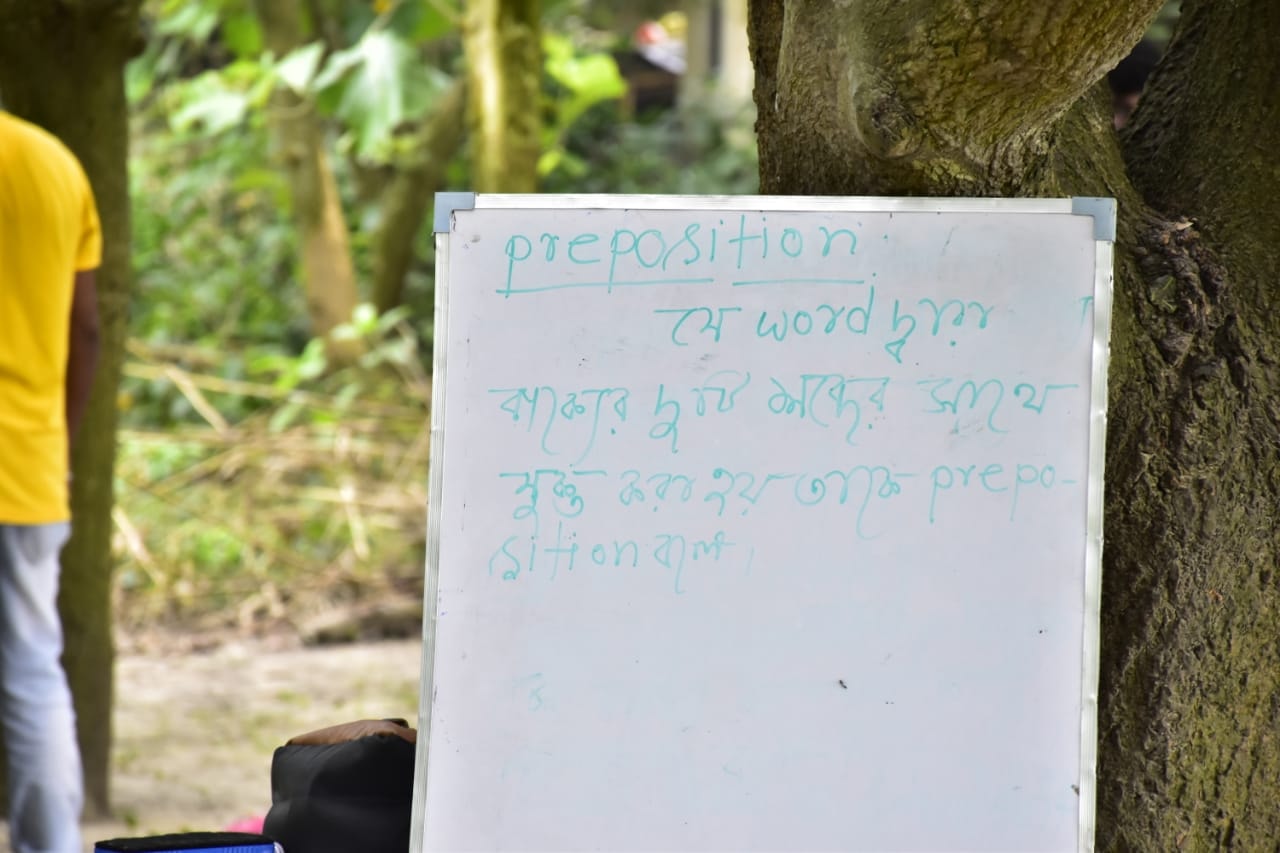 preposition
যে word দ্বারা
বাক্যের দুটি শব্দের সাথে
যুক্ত করা হয় তাকে prepo-
sition বলে।